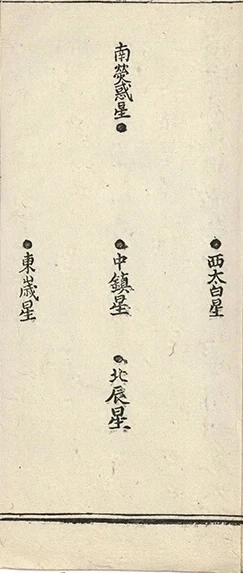 南熒惑星
西太白星
中鎮星
東歳星
北辰星